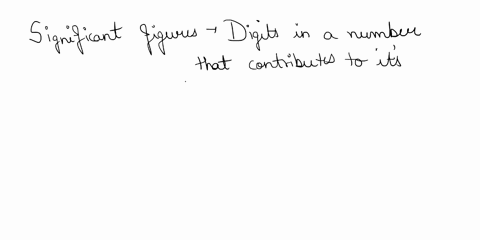 Significant figures → Digits in a number
that contributes to it's